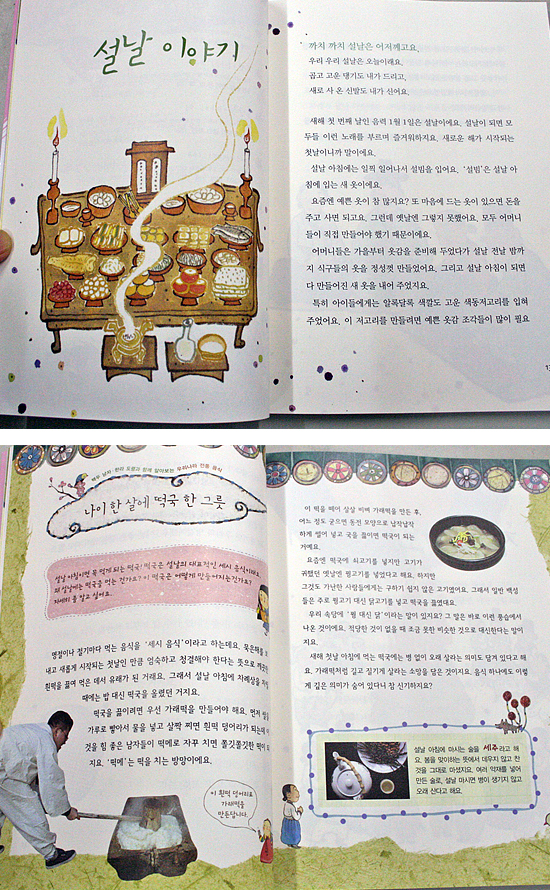 설날 이야기
까치 까치 설날은 어저께고요,
우리 우리 설날은 오늘이래요.
곱고 고운 댕기도 내가 드리고,
새로 사 온 신발도 내가 신어요.
새해 첫 번째 날인 음력 1월 1일은 설날이에요. 설날이 되면 모
두들 이런 노래를 부르며 즐거워하지요. 새로운 해가 시작되는
첫날이니까 말이에요.
설날 아침에는 일찍 일어나서 설빔을 입어요. ‘설빔’은 설날 아
침에 입는 새 옷이에요.
요즘엔 예쁜 옷이 참 많지요? 또 마음에 드는 옷이 있으면 돈을
주고 사면 되고요. 그런데 옛날엔 그렇지 못했어요. 모두 어머니
들이 직접 만들어야 했기 때문이에요.
어머니들은 가을부터 옷감을 준비해 두었다가 설날 전날 밤까
지 식구들의 옷을 정성껏 만들었어요. 그리고 설날 아침이 되면
다 만들어진 새 옷을 내어 주었지요.
특히 아이들에게는 알록달록 색깔도 고운 색동저고리를 입혀
주었어요. 이 저고리를 만들려면 예쁜 옷감 조각들이 많이 필요
나이 한 살에 떡국 한 그릇
설날 아침이면 꼭 먹게 되는 떡국! 떡국은 설날의 대표적인 세시 음식이래요.
왜 설날에는 떡국을 먹는 건가요? 이 떡국은 어떻게 만들어지는건가요?
자세히 좀 알고 싶어요.
명절이나 절기마다 먹는 음식을 ‘세시 음식’이라고 하는데요. 묵은해를 보
내고 새롭게 시작되는 첫날인 만큼 엄숙하고 청결해야 한다는 뜻으로 깨끗한
흰떡을 끓여 먹은 데서 유래가 된 거래요. 그래서 설날 아침에 차례상을 차릴
때에는 밥 대신 떡국을 올렸던 거지요.
떡국을 끓이려면 우선 가래떡을 만들어야 해요. 먼저 쌀을
가루로 빻아서 물을 넣고 살짝 찌면 흰떡 덩어리가 되는데
것을 힘 좋은 남자들이 떡메로 자꾸 치면 쫄깃쫄깃한 떡이 되
지요. ‘떡메’는 떡을 치는 방망이에요.
이 흰떡 덩어리로
가래떡을
만든답니다.
이 떡을 떼어 살살 비벼 가래떡을 만든 후,
어느 정도 굳으면 동전 모양으로 납작납작
하게 썰어 넣고 국을 끓이면 떡국이 되는
거예요.
요즘엔 떡국에 쇠고기를 넣지만 고기가
귀했던 옛날엔 꿩고기를 넣었다고 해요. 하지만
그것도 가난한 사람들에게는 구하기 쉽지 않은 고기였어요. 그래서 일반 백성
들은 주로 꿩고기 대신 닭고기를 넣고 떡국을 끓였대요.
우리 속담에 ‘꿩 대신 닭’이라는 말이 있지요? 그 말은 바로 이런 풍습에서
나온 것이에요. 적당한 것이 없을 때 조금 못한 비슷한 것으로 대신한다는 말이
지요.
새해 첫날 아침에 먹는 떡국에는 병 없이 오래 살라는 의미도 담겨 있다고 해
요. 가래떡처럼 길고 질기게 살라는 소망을 담은 것이지요. 음식 하나에도 이렇
게 깊은 의미가 숨어 있다니 참 신기하지요?
설날 아침에 마시는 술을 세주라고 해
요. 봄을 맞이하는 뜻에서 데우지 않고 찬
것을 그대로 마셨지요. 여러 약재를 넣어
만든 술로, 설날 마시면 병이 생기지 않고
오래 산다고 해요.